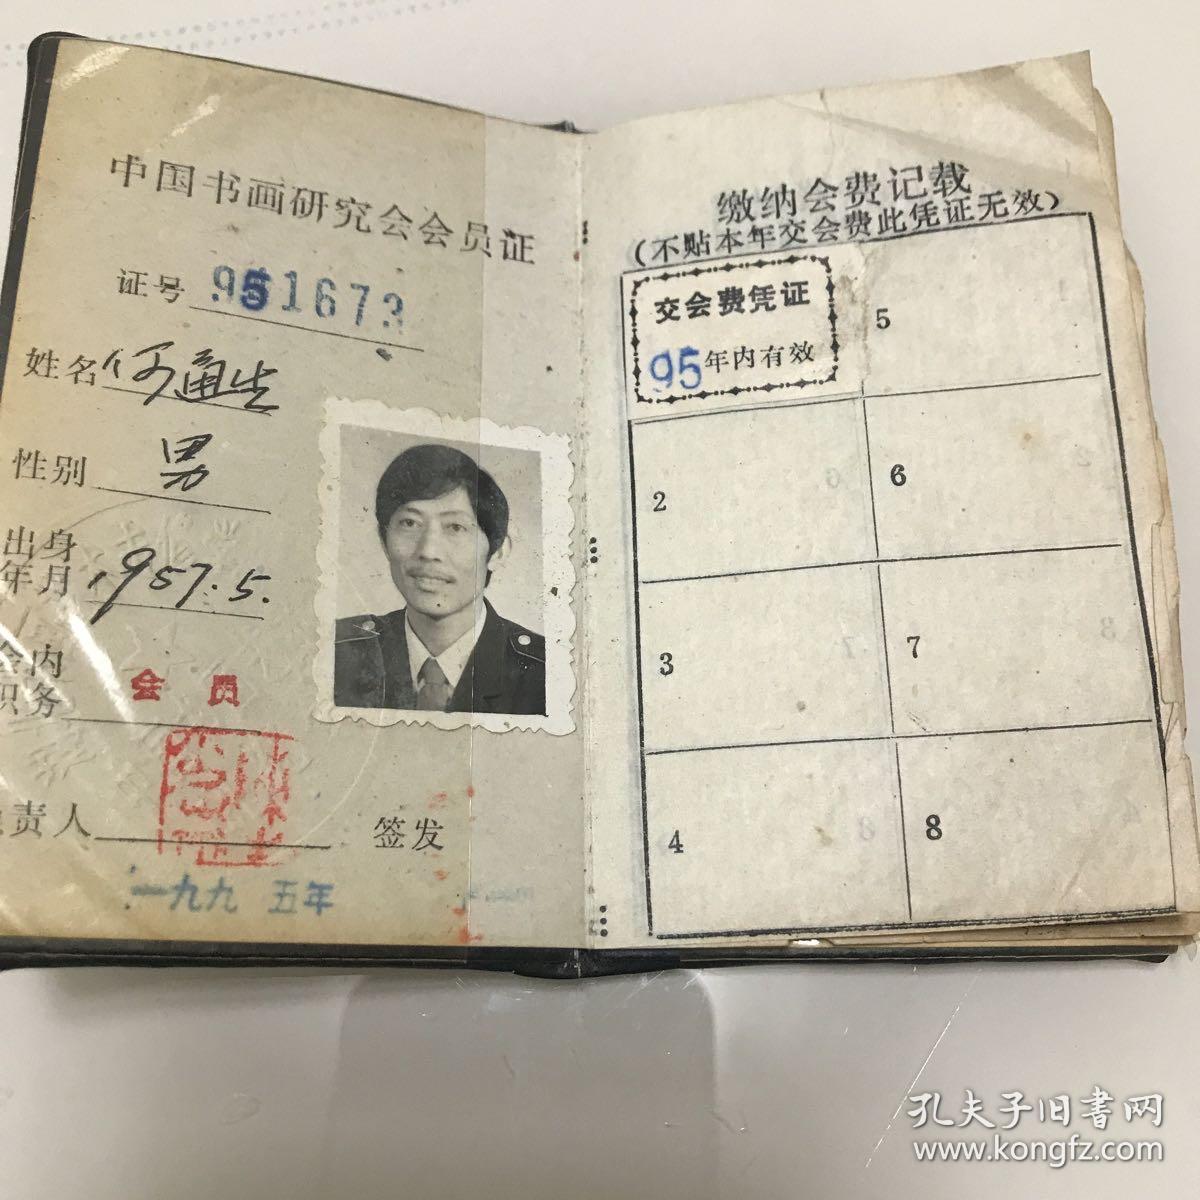 中国书画研究会会员证
证号 951673
姓名 何通生
性别 男
出身
年月 1957.5.
会内
职务 会员
负责人 签发
一九九五年
缴纳会费记载
（不贴本年交会费此凭证无效）
交会费凭证
95年内有效
5
2
6
3
7
4
8
孔夫子旧书网
www.kongfz.com